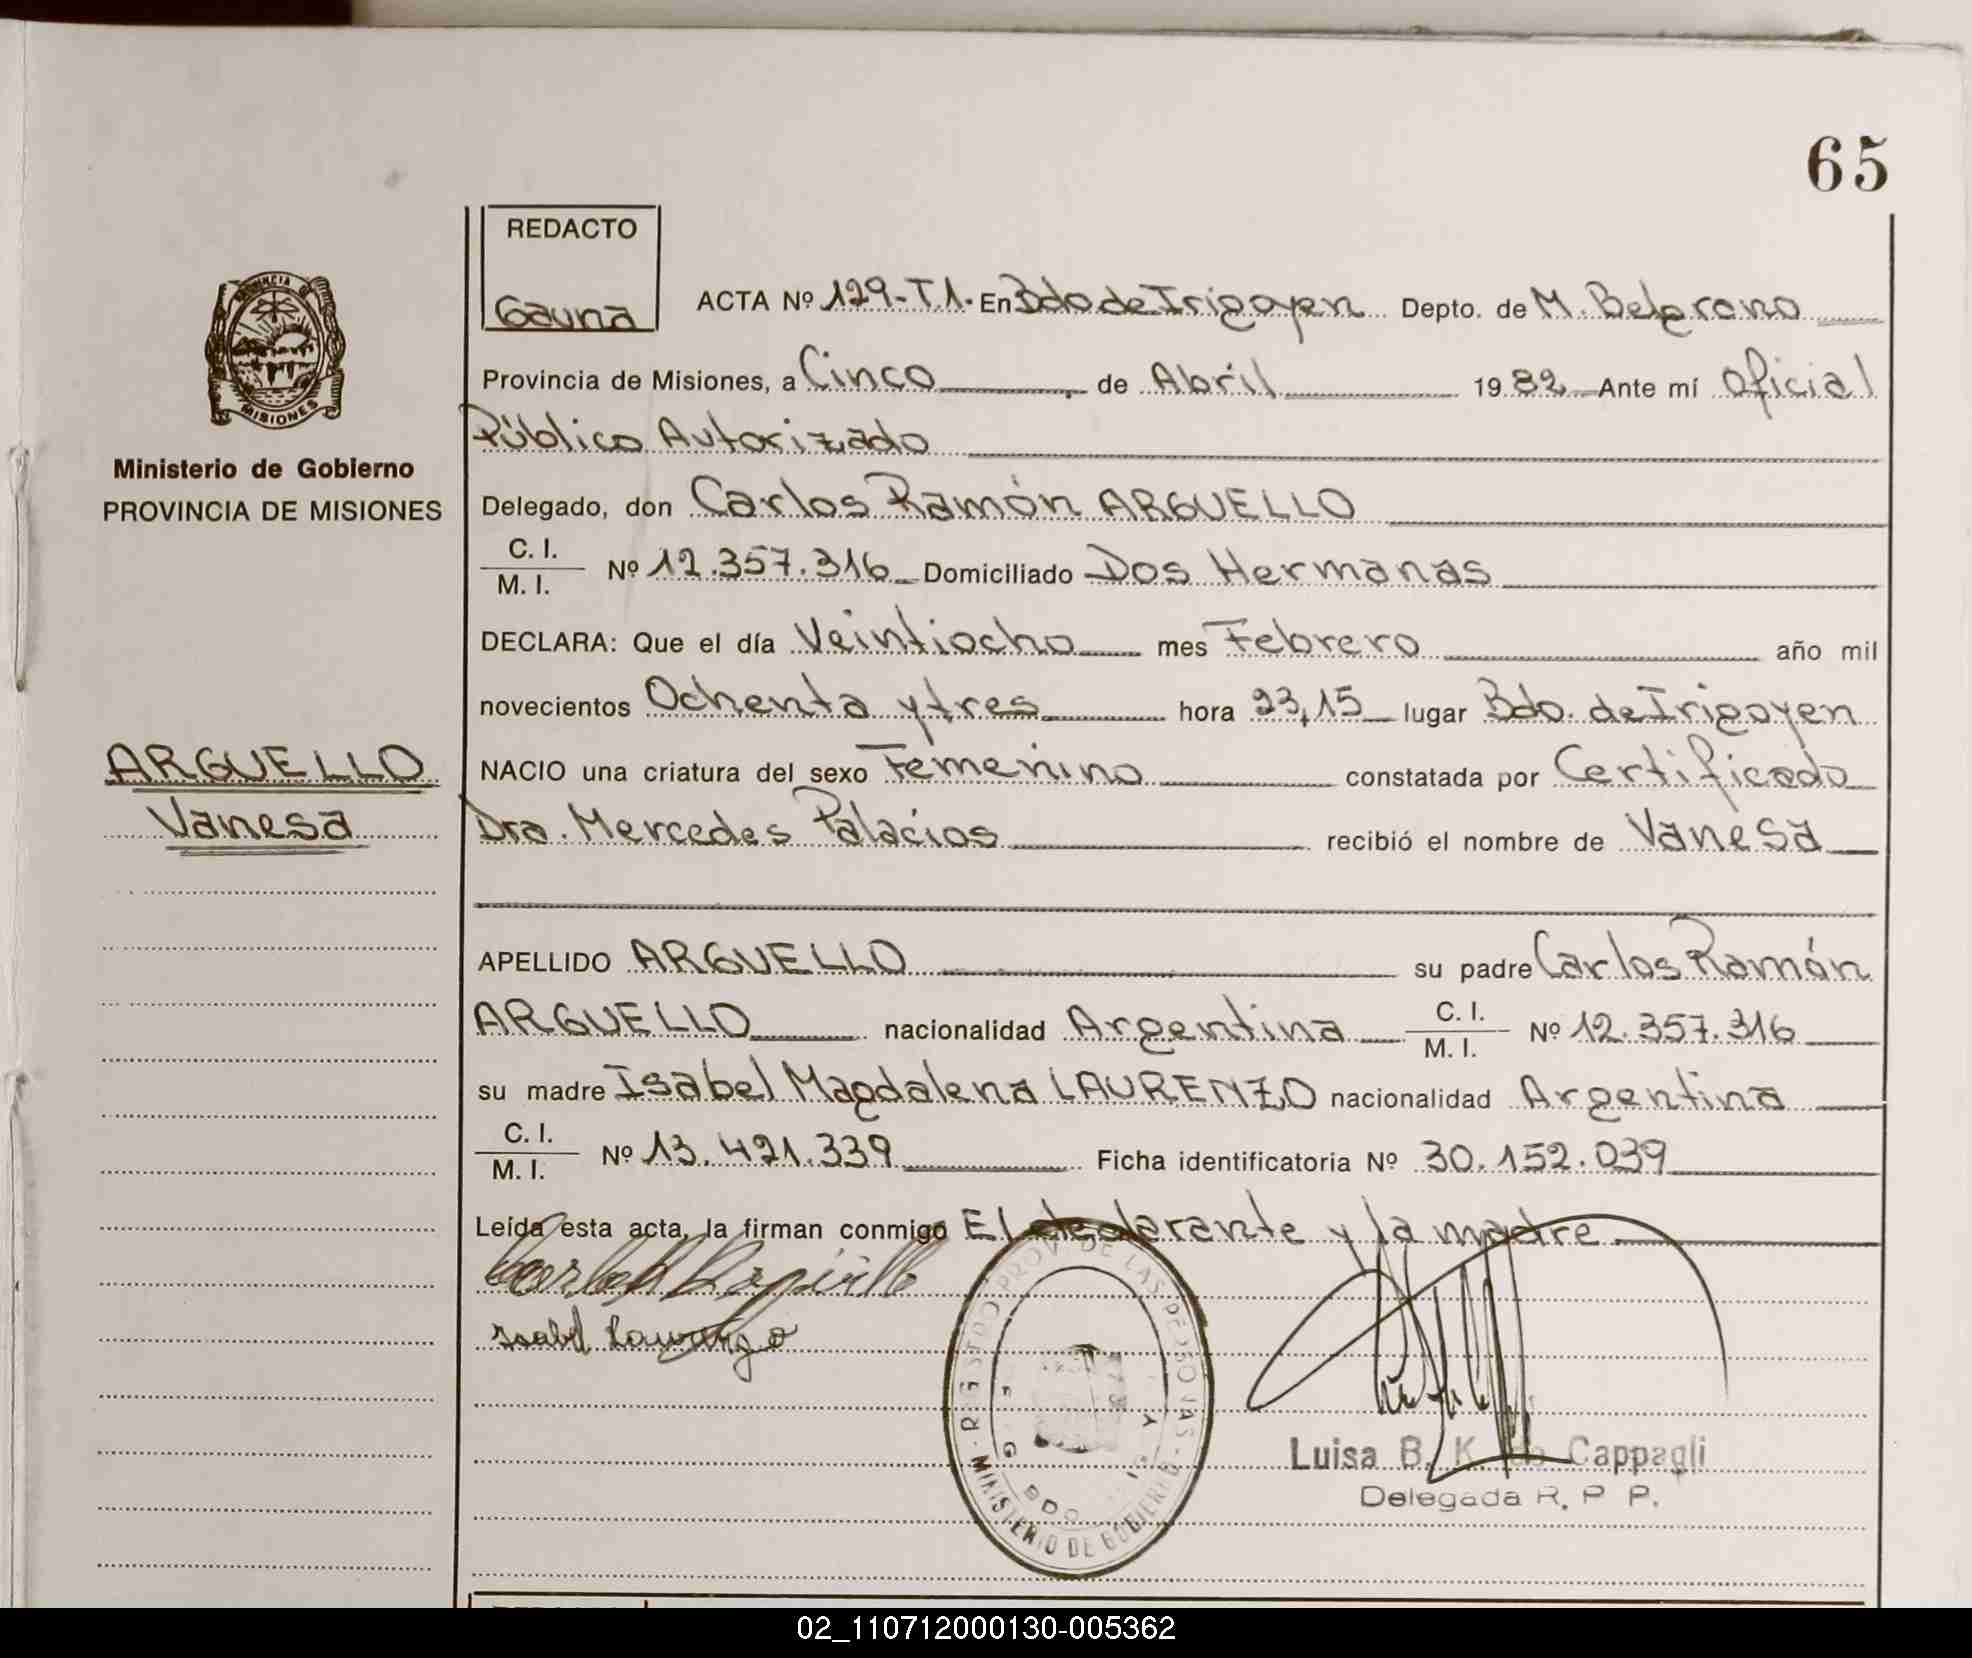 65
REDACTO
Gauna
ACTA Nº 129-T.1. En Bdo de Irigoyen Depto. de M. Belgrano
Provincia de Misiones, a Cinco de Abril 1982 Ante mí Oficial
Público Autorizado
Delegado, don Carlos Ramón ARGUELLO
C. I.
M. I.
Nº 12.357.316 Domiciliado Dos Hermanas
DECLARA: Que el día Veintiocho mes Febrero año mil
novecientos Ochenta y tres hora 23,15 lugar Bdo. de Irigoyen
NACIO una criatura del sexo Femenino constatada por Certificado
Dra. Mercedes Palacios recibió el nombre de Vanesa
APELLIDO ARGUELLO su padre Carlos Ramón
ARGUELLO nacionalidad Argentina C. I.
M. I. Nº 12.357.316
su madre Isabel Magdalena LAURENZO nacionalidad Argentina
C. I.
M. I. Nº 13.421.339 Ficha identificatoria Nº 30.152.039
Leída esta acta, la firman conmigo El declarante y la madre.
Luisa B. K. de Cappagli
Delegada R. P. P.
REGISTRO PROV DE LAS PERSONAS
MINISTERIO DE GOBIERNO
BDO
PROVINCIA
MISIONES
Ministerio de Gobierno
PROVINCIA DE MISIONES
ARGUELLO
Vanesa
02_110712000130-005362